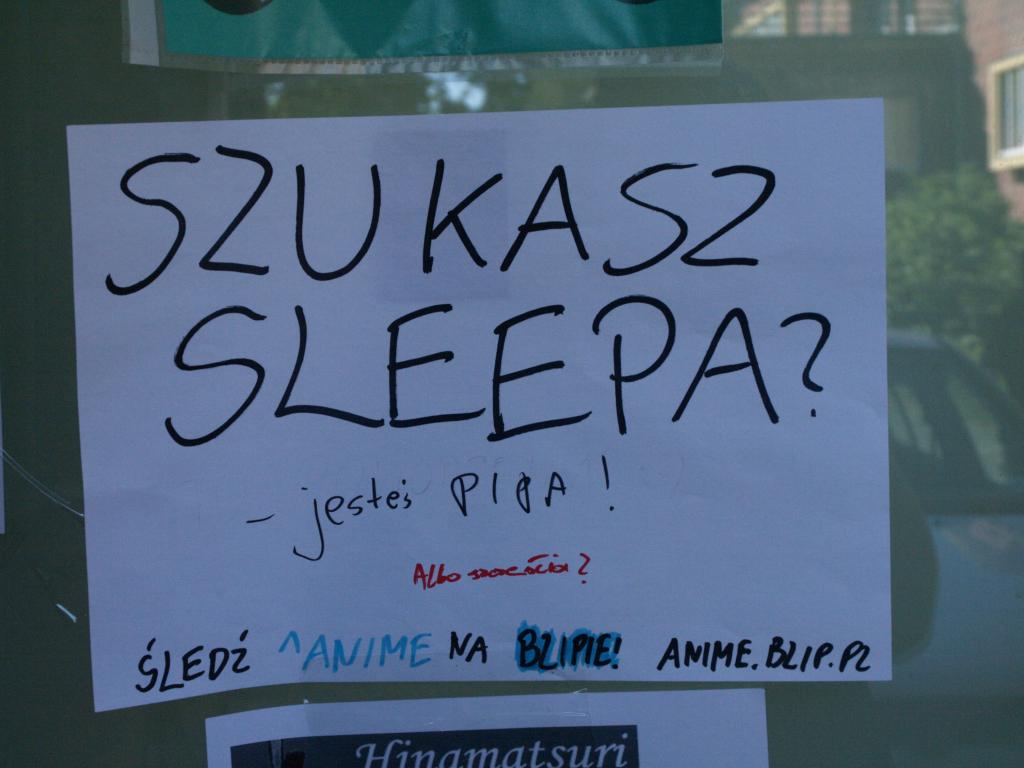 SZUKASZ
SLEEPA?
– jesteś PIPA!
Albo sześcian?
ŚLEDŹ ^ANIME NA BLIPIE! ANIME.BLIP.PL
Hinamatsuri